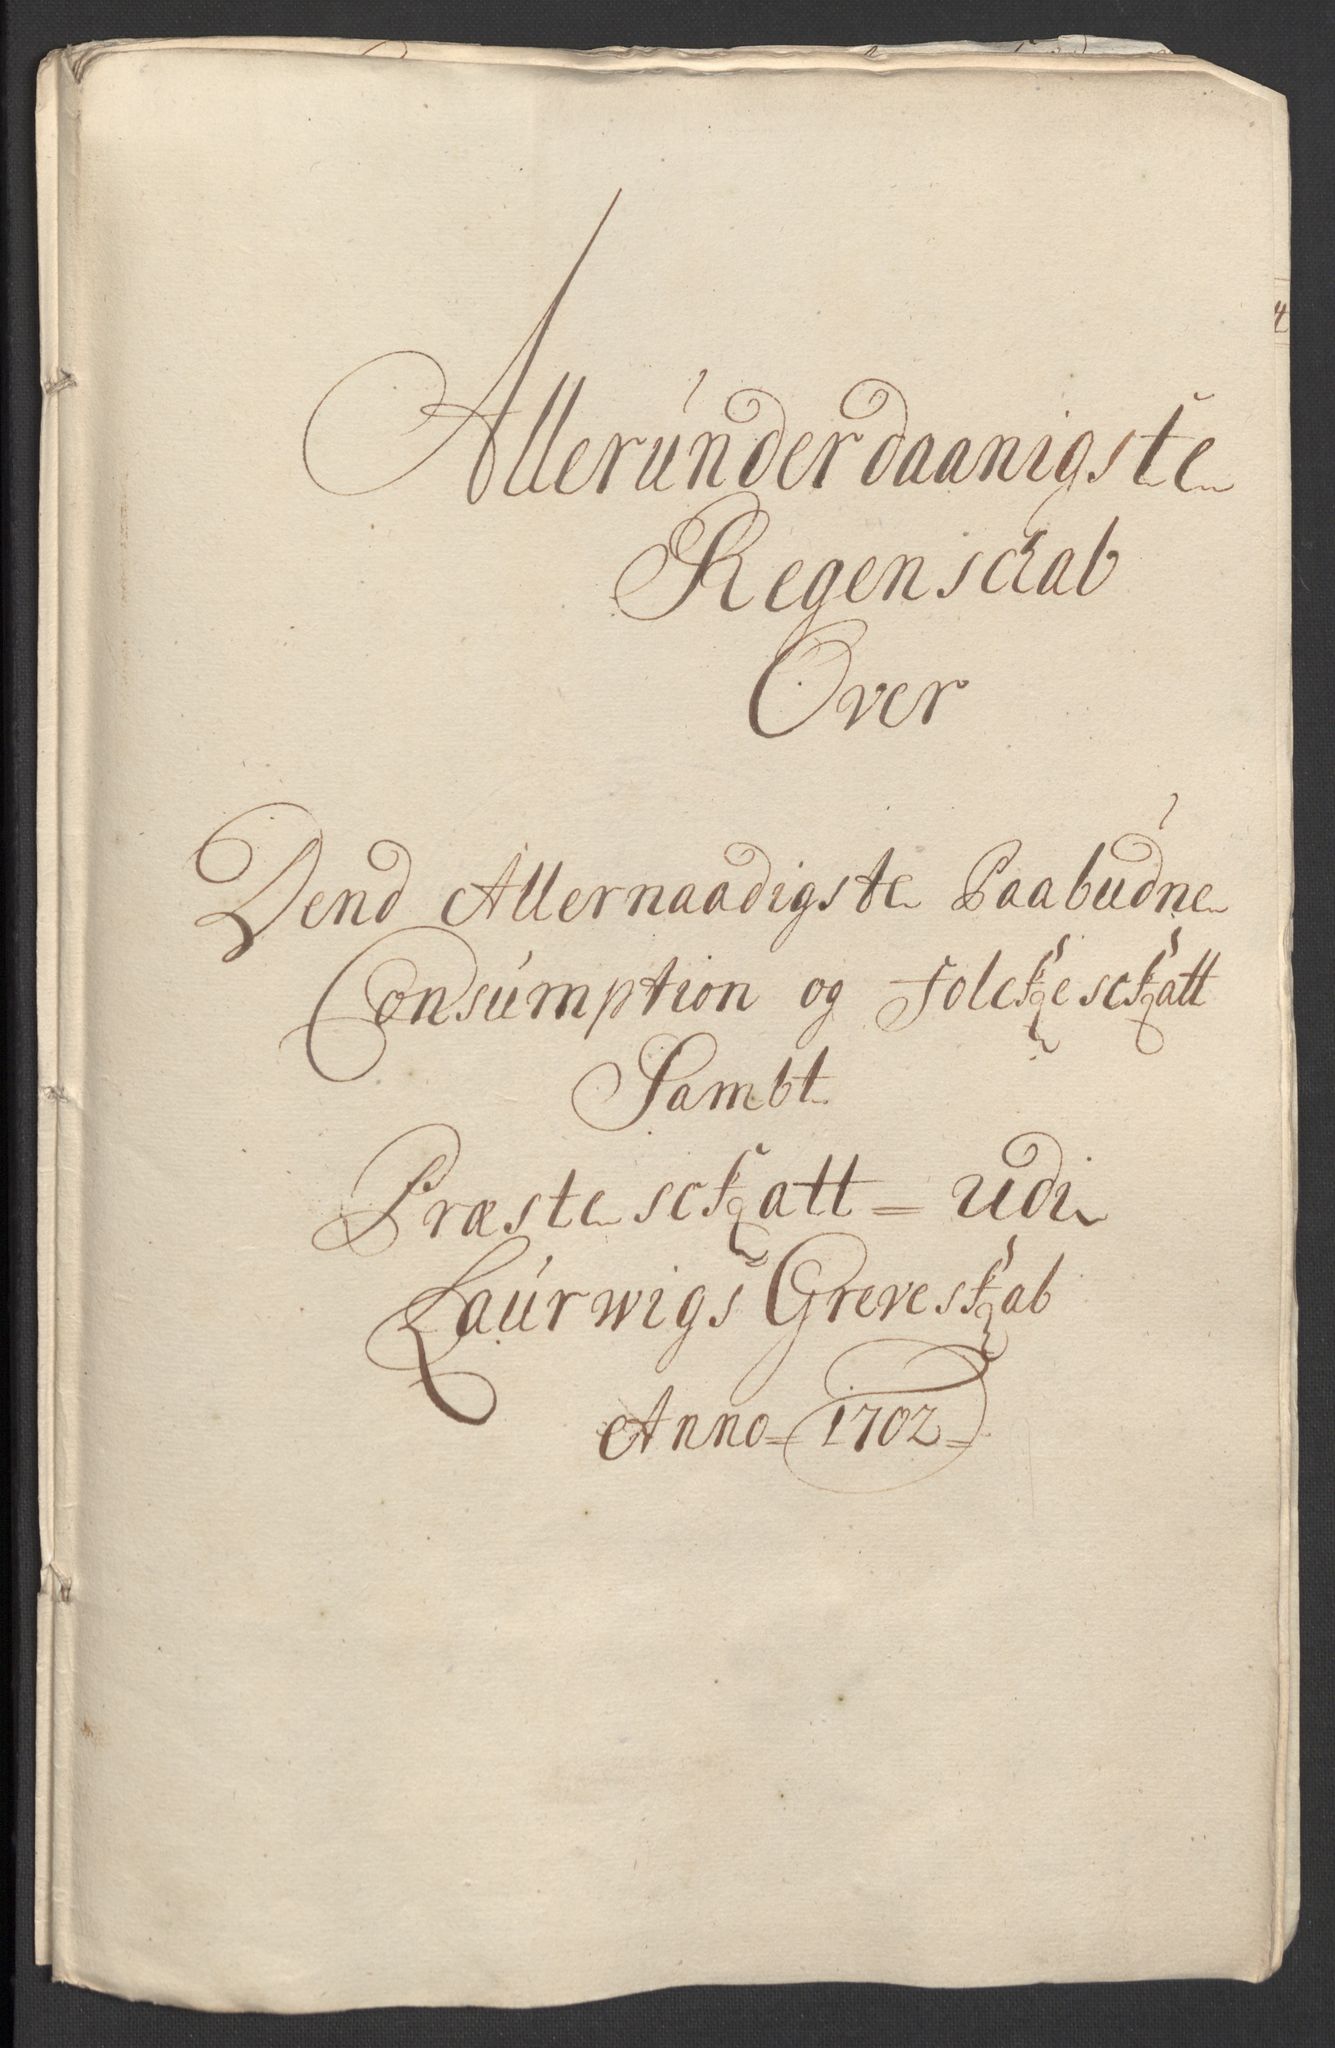 Allerunderdaanigste
Regenskab
Over
Dend Allernaadigste Paabudne
Consumption og Folckeschatt
Sambt
Præsteschatt = udi
Laurwigs Greveskab
Anno = 1702 =